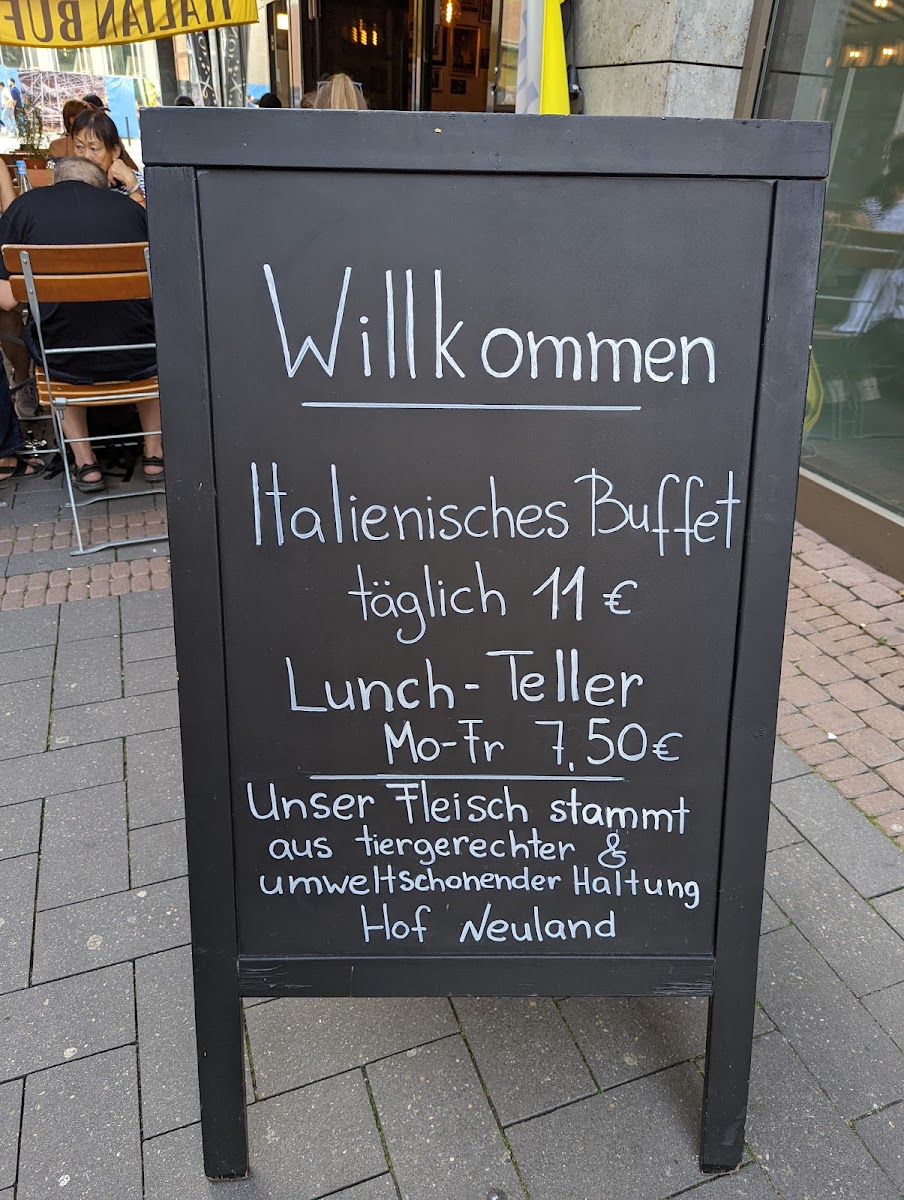 ITALIAN BUF
Willkommen
Italienisches Buffet
täglich 11 €
Lunch-Teller
Mo-Fr 7,50€
Unser Fleisch stammt
aus tiergerechter &
umweltschonender Haltung
Hof Neuland